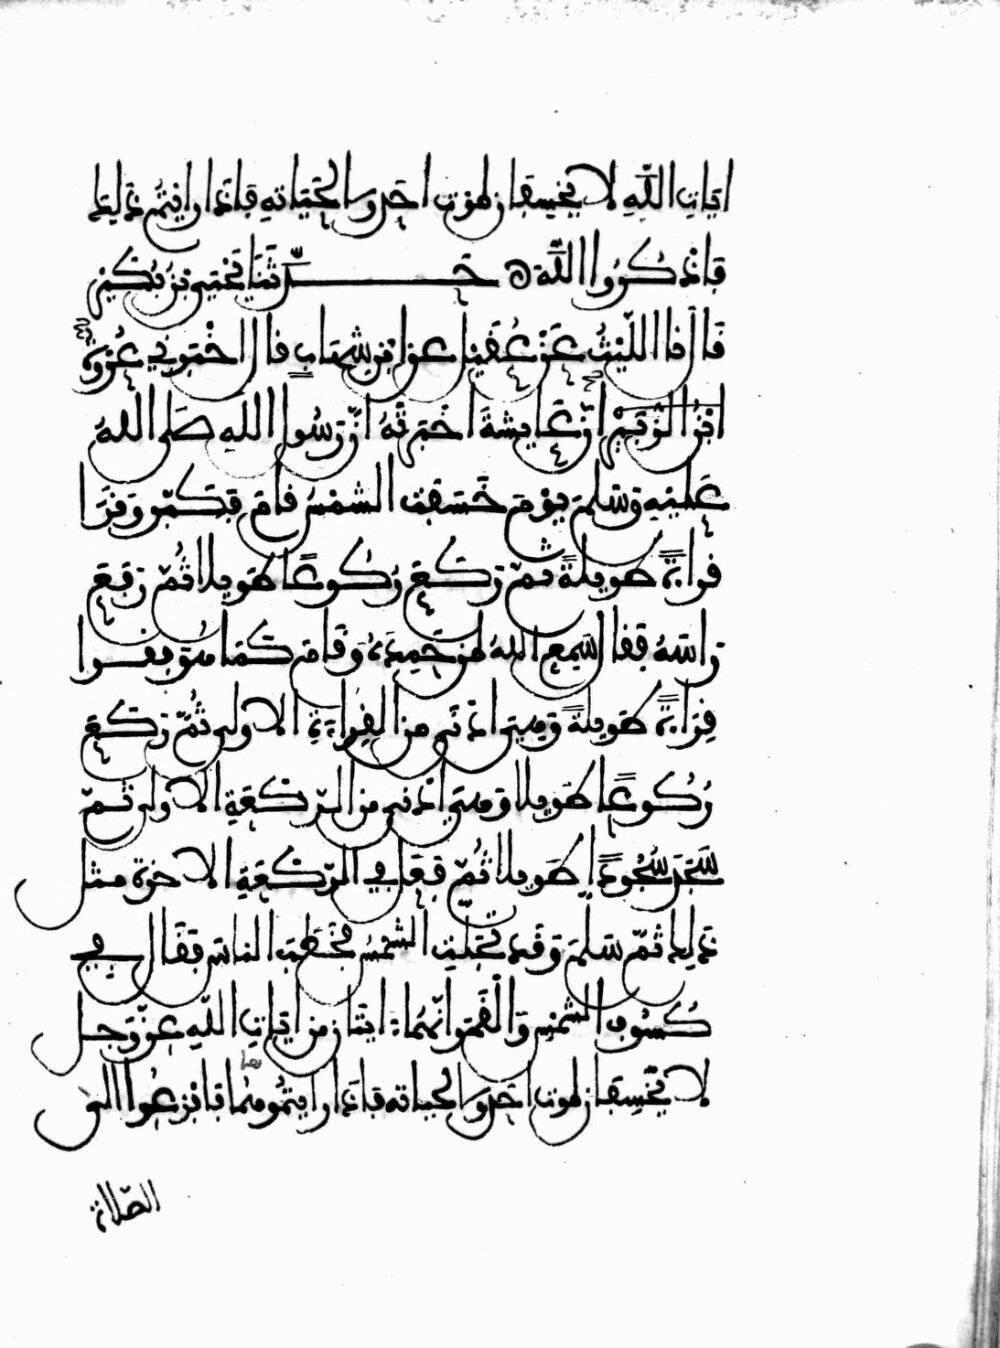 ايات الله لا يخسفان لموت احد ولا لحياته فاذا رايتم ذلك
فاذكروا الله حدثنا يحيى بن بكير
قال نا الليث عن عقيل عن ابن شهاب قال اخبرني عروة
ابن الزبير ان عايشة اخبرته ان رسول الله صلى الله
عليه وسلم يوم خسفت الشمس قام فكبر وقرا
قراءة طويلة ثم ركع ركوعا طويلا ثم رفع
راسه فقال سمع الله لمن حمده وقام كما هو فقرا
قراءة طويلة وهي ادنى من القراءة الاولى ثم ركع
ركوعا طويلا وهي ادنى من الركعة الاولى ثم
سجد سجودا طويلا ثم فعل في الركعة الاخرة مثل
ذلك ثم سلم وقد تجلت الشمس فخطب الناس فقال في
كسوف الشمس والقمر انهما ايتان من ايات الله عز وجل
لا يخسفان لموت احد ولا لحياته فاذا رايتموهما فافزعوا الى
الصلاة